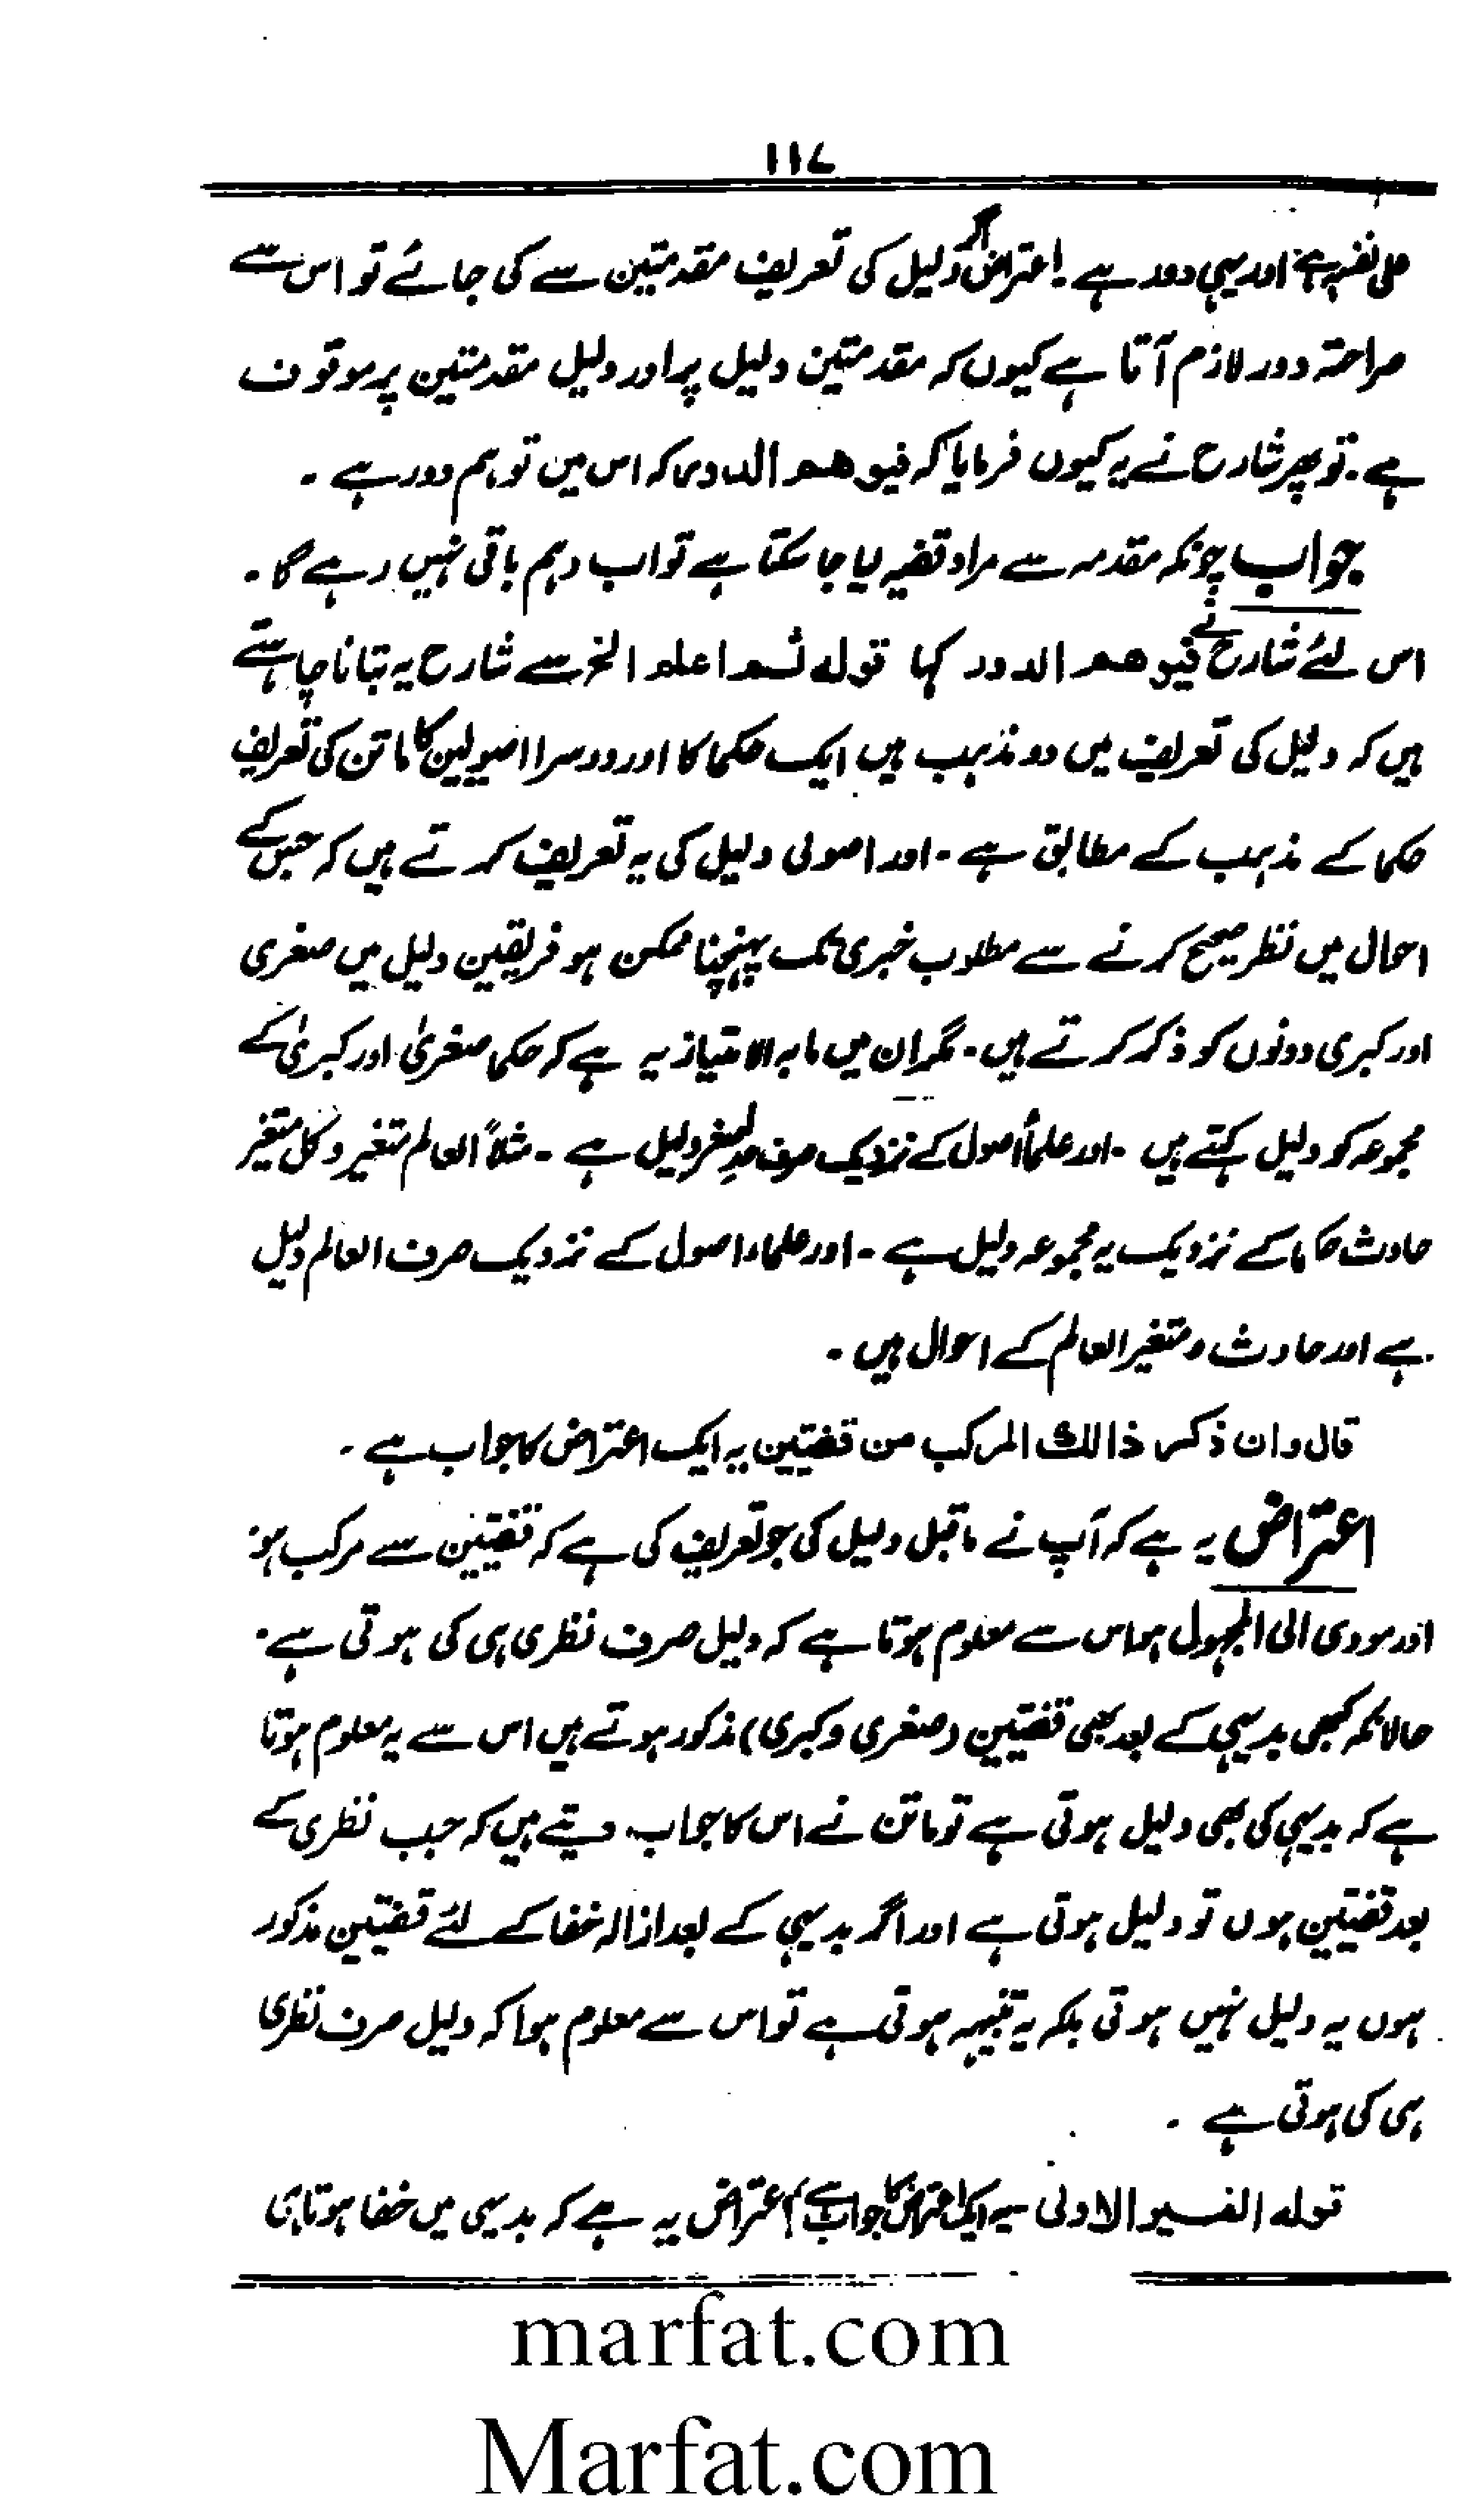 ۱۱۷
علی نفسہ ہے اور یہی دور ہے ۔ اعتراض اگر دلیل کی تعریف مقدمتین سے کی جائے تو اس سے
صراحتہ دور لازم آتا ہے کیوں کہ مقدمتین دلیل پر اور دلیل مقدمتین پر موقوف
ہے ۔ تو پھر شارح نے یہ کیوں فرمایا کہ فیوھم الدور کہ اس میں توہم دور ہے ۔
جواب چونکہ مقدمہ سے مراد قضیہ لیا جا سکتا ہے تو اب وہم باقی نہیں رہے گا ۔
اس لئے شارح نے فیوھم الدور کہا قولہ ثم اعلم الخ سے شارح یہ بتانا چاہتے
ہیں کہ دلیل کی تعریف میں دو مذہب ہیں ایک حکما کا اور دوسرا اصولیین کا ماتن کی تعریف
حکما کے مذہب کے مطابق ہے ۔ اور اصولی دلیل کی یہ تعریف کرتے ہیں کہ جس کے
احوال میں نظر صحیح کرنے سے مطلوب خبری تک پہنچنا ممکن ہو فریقین دلیل میں صغری
اور کبری دونوں کو ذکر کرتے ہیں ۔ مگر ان میں مابہ الامتیاز یہ ہے کہ حکما صغریٰ اور کبریٰ کے
مجموعہ کو دلیل کہتے ہیں ۔ اور علمأ اصول کے نزدیک صرف دلیل ہے ۔ مثلاً العالم متغیر و کل متغیر
حادث حکما کے نزدیک یہ مجموعہ دلیل ہے ۔ اور علماء اصول کے نزدیک صرف العالم دلیل
ہے اور حادث و متغیر العالم کے احوال ہیں ۔
قال وان ذکر ذالک المرکب من قضیتین یہ ایک اعتراض کا جواب ہے ۔
اعتراض یہ ہے کہ آپ نے ماقبل دلیل کی جو تعریف کی ہے کہ قضیتین سے مرکب ہو
اور مودی الی المجہول ہو اس سے معلوم ہوتا ہے کہ دلیل صرف نظری ہی کی ہوتی ہے ۔
حالانکہ کبھی بدیہی کے بعد بھی قضیتین (صغری و کبری) مذکور ہوتے ہیں اس سے یہ معلوم ہوتا
ہے کہ بدیہی کی بھی دلیل ہوتی ہے تو ماتن نے اس کا جواب دیتے ہیں کہ جب نظری کے
بعد قضیتین ہوں تو دلیل ہوتی ہے اور اگر بدیہی کے بعد ازالہ خفا کے لئے قضیتین مذکور
ہوں یہ دلیل نہیں ہوتی بلکہ یہ تنبیہہ ہوتی ہے تو اس سے معلوم ہوا کہ دلیل صرف نظری
ہی کی ہوتی ہے ۔
قولہ الغیر الاولی یہ ایک اعتراض کا جواب ہے اعتراض یہ ہے کہ بدیہی میں خفا ہوتا ہی
marfat.com
Marfat.com